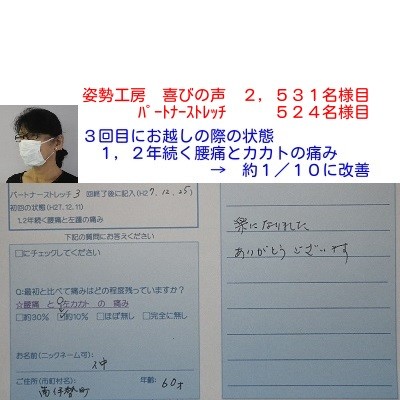 姿勢工房 喜びの声 2,531名様目
パートナーストレッチ 524名様目
3回目にお越しの際の状態
1,2年続く腰痛とカカトの痛み
→ 約1/10に改善
パートナーストレッチ3回目終了後に記入(H27.12.25)
初回の状態(H27.12.11)
1.2年続く腰痛と左踵の痛み
下記の質問にお答えください
□にチェックしてください
Q:最初と比べて痛みはどの程度残っていますか?
☆腰痛 と 左カカト の 痛み
□約30% ☑約10% □ほぼ無し □完全に無し
お名前(ニックネーム可):
ご住所(市町村名): 年齢: 60才
楽になりました
ありがとうございます